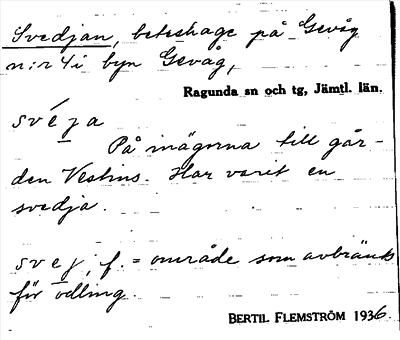 Svedjan, beteshage på Gevåg
n:r 4 i byn Gevåg,
Ragunda sn och tg, Jämtl. län.
svéja
På inägorna till går-
den Vestins. Har varit en
svedja.
svej, f. = område som avbränts
för odling.
BERTIL FLEMSTRÖM 1936.